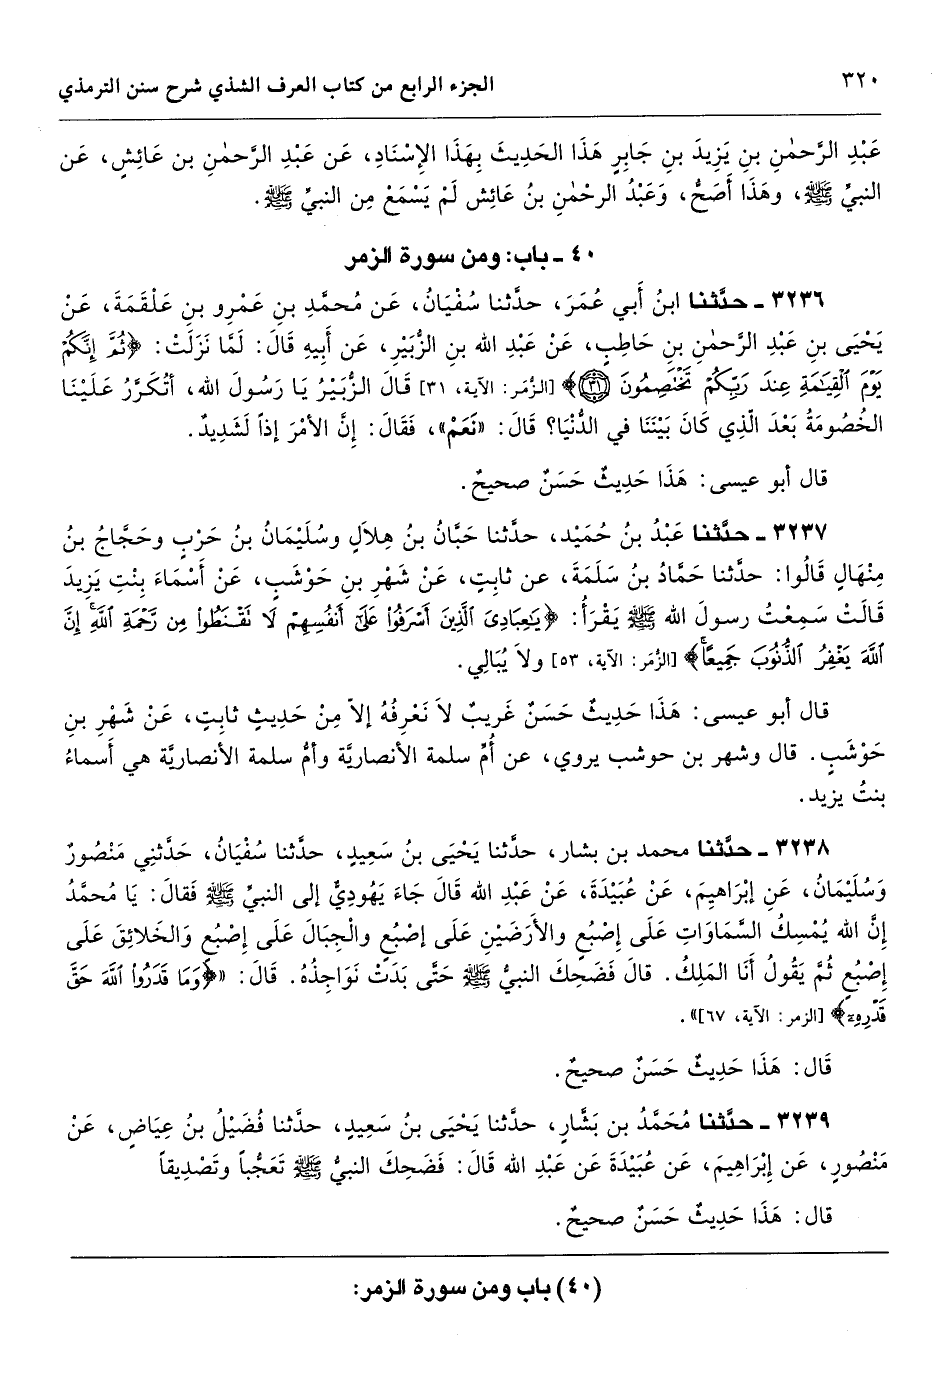 ٣٢٠
الجزء الرابع من كتاب العرف الشذي شرح سنن الترمذي
عَبْدِ الرَّحمٰنِ بنِ يَزِيدَ بنِ جَابِرٍ هَذَا الحَدِيثَ بِهَذَا الإسْنَادِ، عَن عَبْدِ الرَّحمٰنِ بن عَائِشٍ، عَن
النبيِّ ﷺ، وهَذَا أَصَحُّ، وَعَبْدُ الرحْمٰنِ بنُ عَائش لَمْ يَسْمَعْ مِن النبيِّ ﷺ.
٤٠ ـ باب: ومن سورة الزمر
٣٢٣٦ ـ حدَّثنا ابنُ أَبي عُمَرَ، حَدَّثنا سُفْيَانُ، عَن مُحمَّدِ بنِ عَمْرِو بنِ عَلْقَمَةَ، عَنْ
يَحْيَى بنِ عَبْدِ الرَّحمٰنِ بنِ حَاطِبٍ، عَنْ عَبْدِ الله بنِ الزُّبَيْرِ، عَن أَبِيهِ قَالَ: لَمَّا نَزَلَتْ: ﴿ثُمَّ إِنَّكُمْ
يَوْمَ ٱلْقِيَـٰمَةِ عِندَ رَبِّكُمْ تَخْتَصِمُونَ ﴿٣١﴾﴾ [الزُّمَر: الآية، ٣١] قَالَ الزُّبَيْرُ يَا رَسُولَ الله، أتُكَرَّرُ عَلَيْنَا
الخُصُومَةُ بَعْدَ الَّذِي كَانَ بَيْنَنَا في الدُّنْيَا؟ قَالَ: «نَعَمْ»، فَقَالَ: إِنَّ الأمْرَ إذاً لَشَدِيدٌ.
قال أبو عيسى: هَذَا حَدِيثٌ حَسَنٌ صحيحٌ.
٣٢٣٧ ـ حدَّثنا عَبْدُ بنُ حُمَيْدٍ، حدَّثنا حَبَّانُ بن هِلاَلٍ وسُلَيْمَانُ بنُ حَرْبٍ وحَجَّاجُ بنُ
مِنْهَالٍ قَالُوا: حدَّثنا حَمَّادُ بنُ سَلَمَةَ، عن ثابِتٍ، عَنْ شَهْرِ بنِ حَوْشَبٍ، عَنْ أَسْمَاءَ بِنْتِ يَزِيدَ
قَالَتْ سَمِعْتُ رسولَ الله ﷺ يَقْرَأُ: ﴿يَـٰعِبَادِىَ ٱلَّذِينَ أَسْرَفُوا۟ عَلَىٰٓ أَنفُسِهِمْ لَا نَقْـنَطُوا۟ مِن رَّحْمَةِ ٱللَّهِۚ إِنَّ
ٱللَّهَ يَغْفِرُ ٱلذُّنُوبَ جَمِيعًاۚ﴾ [الزُّمَر: الآية، ٥٣] ولاَ يُبَالِي.
قال أبو عيسى: هَذَا حَدِيثٌ حَسَنٌ غَرِيبٌ لاَ نَعْرِفُهُ إلاَّ مِنْ حَدِيثِ ثابتٍ، عَنْ شَهْرِ بنِ
حَوْشَبٍ. قال وشهر بن حوشب يروي، عن أُمِّ سلمة الأنصاريَّة وأمُّ سلمة الأنصاريَّة هي أَسماءُ
بنتُ يزيد.
٣٢٣٨ ـ حدَّثنا محمد بن بشار، حدَّثنا يَحْيَى بنُ سَعِيدٍ، حدَّثنا سُفْيَانُ، حَدَّثنِي مَنْصُورٌ
وَسُلَيْمَانُ، عَنِ إبْرَاهِيمَ، عَنْ عُبَيْدَةَ، عَنْ عَبْدِ الله قَالَ جَاءَ يَهُودِيٌّ إلى النبيِّ ﷺ فَقالَ: يَا مُحمَّدُ
إنَّ الله يُمْسِكُ السَّمَاوَاتِ عَلَى إصْبُعٍ والأرَضْيْنِ عَلَى إصْبُعٍ والْجِبَالَ عَلَى إصْبُعٍ وَالخَلائِقَ عَلَى
إصْبُعٍ ثُمَّ يَقُولُ أَنَا المَلِكُ. قالَ فَضَحِكَ النبيُّ ﷺ حَتَّى بَدَتْ نَوَاجِذُهُ. قَالَ: «﴿وَمَا قَدَرُوا۟ ٱللَّهَ حَقَّ
قَدْرِهِۦ﴾ [الزمر: الآية، ٦٧]».
قَال: هَذَا حَدِيثٌ حَسَنٌ صحيحٌ.
٣٢٣٩ ـ حدَّثنا مُحَمَّدُ بن بَشَّارٍ، حدَّثنا يَحْيَى بنُ سَعِيدٍ، حدَّثنا فُضَيْلُ بنُ عِيَاضٍ، عَنْ
مَنْصُورٍ، عَن إِبْرَاهِيمَ، عَن عُبَيْدَةَ عَن عَبْدِ الله قَالَ: فَضَحِكَ النبيُّ ﷺ تَعَجُّباً وتَصْدِيقاً
قال: هَذَا حَدِيثٌ حَسَنٌ صحيحٌ.
(٤٠) باب ومن سورة الزمر: